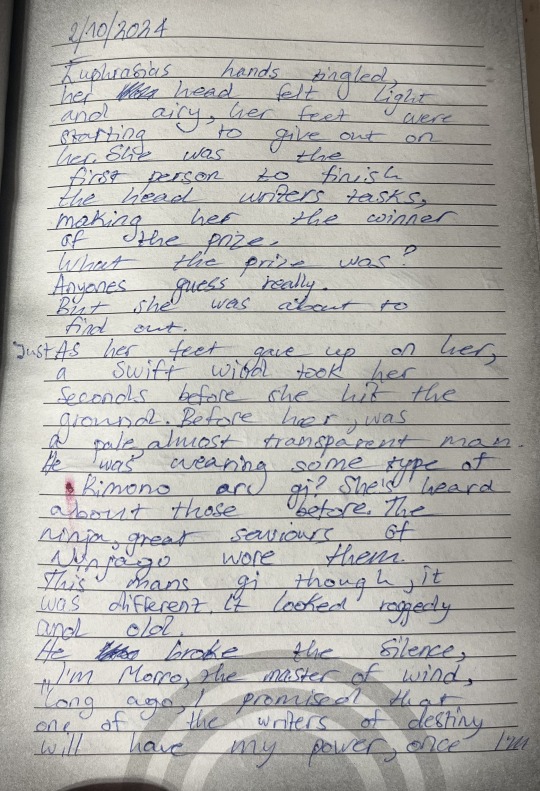 2/10/2024
Euphrasias hands tingled,
her head felt light
and airy, her feet were
starting to give out on
her. She was the
first person to finish
the head writers tasks,
making her the winner
of the prize.
What the prize was?
Anyones guess really.
But she was about to
find out.
Just As her feet gave up on her,
a swift wind took her
seconds before she hit the
ground. Before her, was
a pale, almost transparent man.
He was wearing some type of
Kimono gi? She's heard
about those before. The
ninja, great saviours of
Ninjago wore them.
This mans gi though, it
was different. it looked raggedy
and old.
He broke the silence,
"I'm Morro, the master of wind,
long ago, I promised that
one of the writers of destiny
will have my power, once I'm